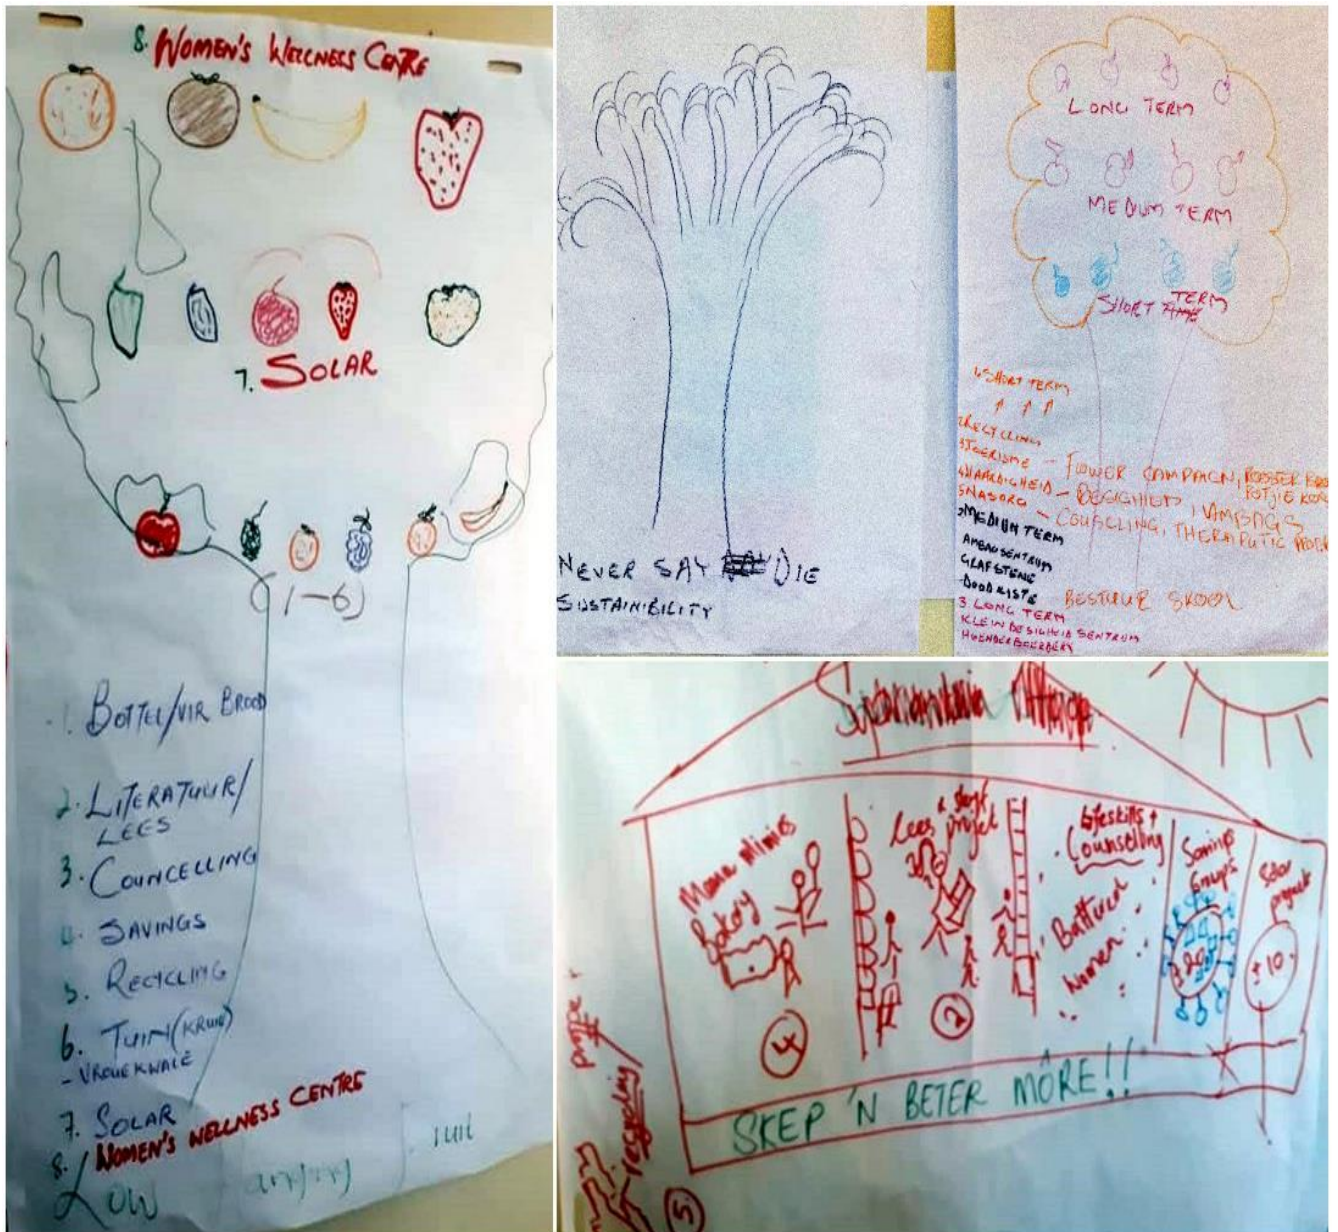 8. WOMEN'S WELLNESS CENTRE
7. SOLAR
(1-6)
1. BOTTEL/VIR BROOD
2. LITERATUUR/
LEES
3. COUNCELLING
4. SAVINGS
5. RECYCLING
6. TUIN (KRUIE)
- VROUEKWALE
7. SOLAR
8. WOMEN'S WELLNESS CENTRE
LOW
NEVER SAY DIE
SUSTAINIBILITY
LONG TERM
MEDIUM TERM
SHORT TERM
1. SHORT TERM
RECYCLING
TOERISME - FLOWER CAMPAIGN, ROOSTER
POTJIE
VAARDIGHEID - BESIGHEID, AMBAGS
NASORG - COUNCLING, THERAPUTIC
MEDIUM TERM
GRAFSTENE
DOODKISTE
BESTUUR SKOOL
3. LONG TERM
KLEIN BESIGHEID SENTRUM
HOENDERBOERDERY
Bakery
4
Lees &
projek
2
Lifeskills +
Counselling
Battered
Women
Saving
Groups
Solar
project
± 10
SKEP 'N BETER MÔRE!!
recycling/
5.